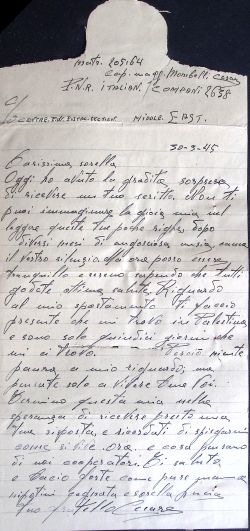 Matr. 205164
Cap. magg. Mombelli Cesare
P.N.R. ITALIAN. COMPANI 2658
c/o CENTRE P.W. POSTAL SECTION MIDDLE. EAST.
30-3-45
Carissima sorella
Oggi ho avuto la gradita sorpresa
di ricevere un tuo scritto. Non ti
puoi immaginare la gioia mia nel
leggere queste tue poche righe dopo
diversi mesi di angosciosa ansia, causa
il vostro silenzio. Ora posso essere
tranquillo e sereno sapendo che tutti
godete ottima salute. Riguardo
al mio spostamento ti faccio
presente che mi trovo in Palestina
e sono solo quindici giorni che
mi ci trovo. niente
paura a mio riguardo, ma
pensate solo a vivere voi.
Termino questa mia nella
speranza di ricevere presto una
tua risposta, e ricordati di spiegarmi
come si vive ora e cosa pensano
di noi cooperatori. Ti saluto
e bacio forte come pure mamma
nipotini cognata e sorella
tuo fratello Cesare